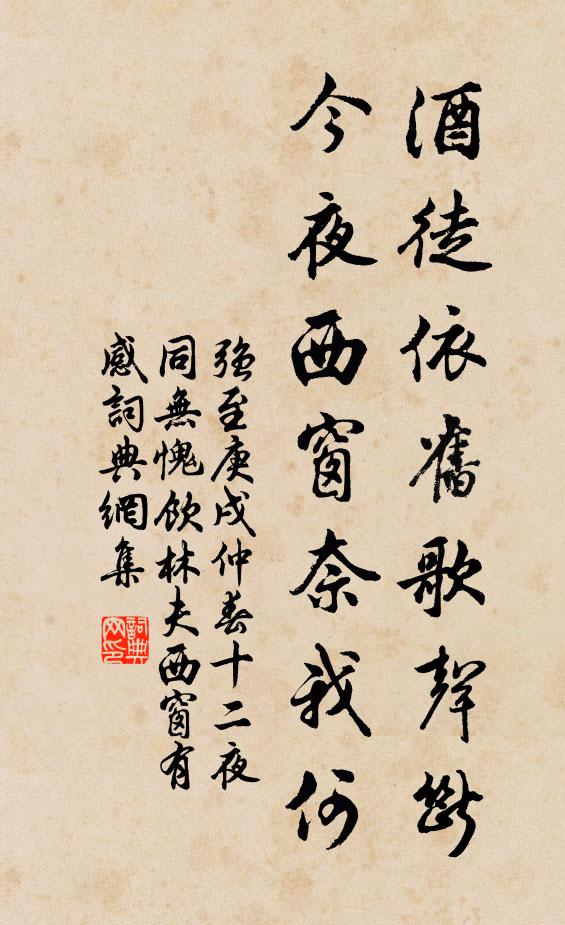 酒徒依舊歌聲斷
今夜西窗奈我何
強至庚戌仲春十二夜
同無愧飲林夫西窗有
感詞典網集
詞典
网印